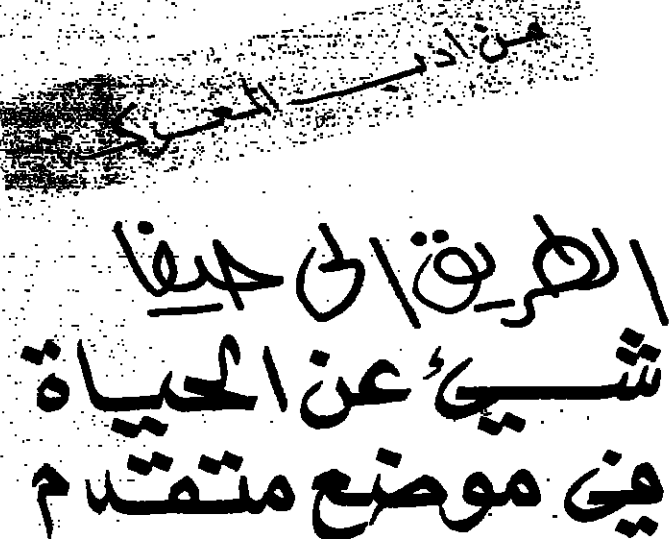 من ادب المعركة
الطريق الى حيفا
شيئ عن الحياة
في موضع متقدم